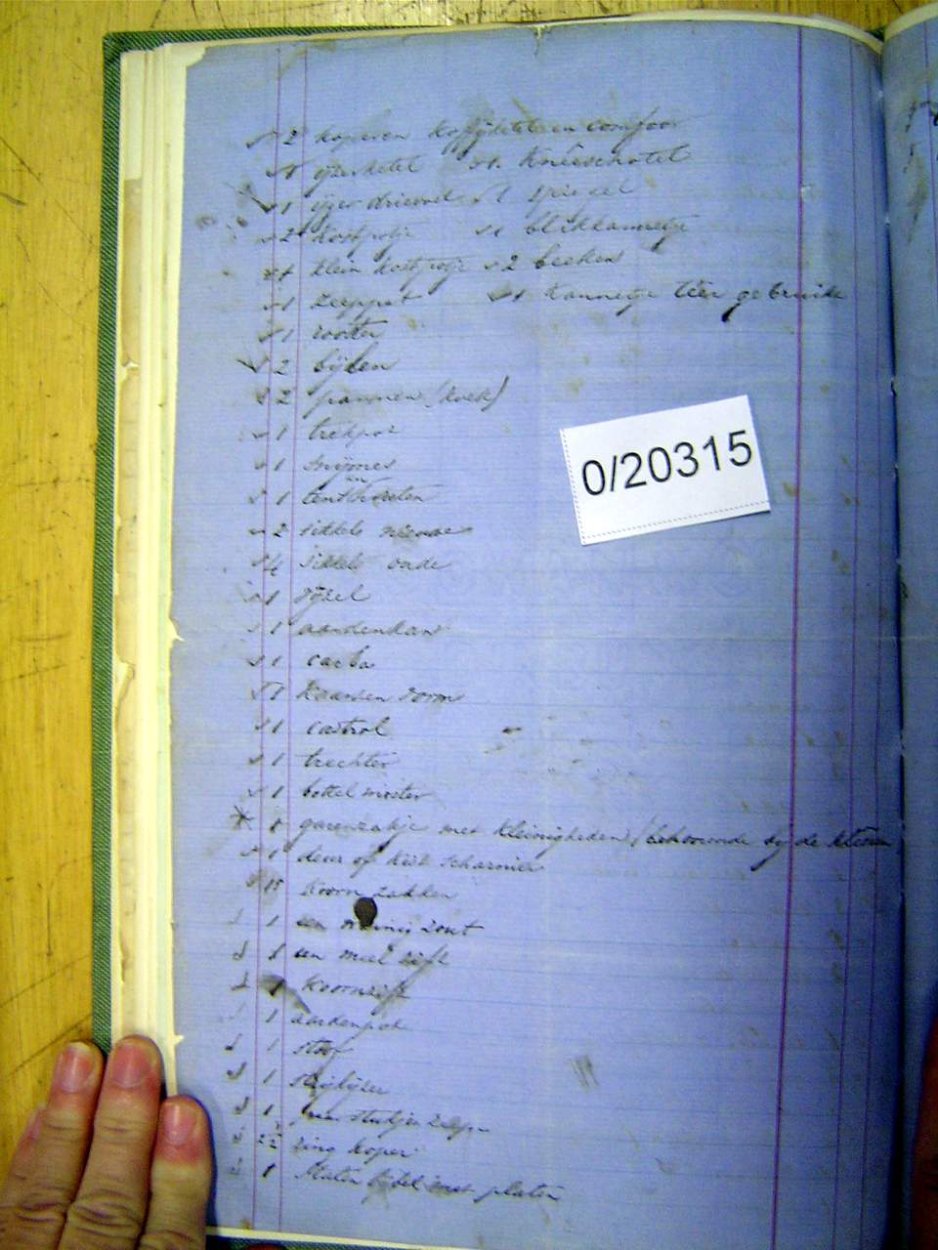 2 koperen koffijketel en comfoor
1 ijzerketel 1 Kneeschotel
1 ijzer drievoet 1 spiegel
2 kostpotje 1 blikkannetje
1 klein kostpotje 2 beekens
1 zeeppot 1 kannetje teer gebruikt
1 rooster
2 bijlen
2 pannen (koek)
1 trekpot
1 snijmes
1 tent
2 sikkels nieuwe
4 sikkels oude
1 vijzel
1 aardenkan
1 carba
1 kaarsen vorm
1 castrol
1 trechter
1 bottel moster
1 garenzakje met kleinigheden / behoorende bij de kleeren
1 deur of kist scharnier
15 koorn zakken
1 een zout
1 een meel zift
1 koornzift
1 aardenpot
1 stoof
1 strijkijzer
1 stukjes zeep
ring koper
1 Staten bijbel met platen
0/20315